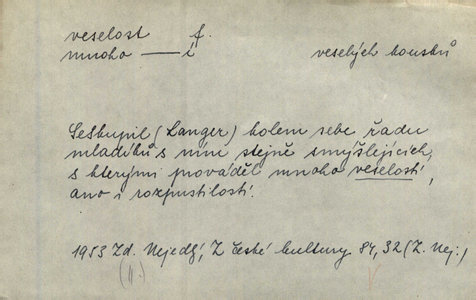 veselost f.
mnoho — í veselých kousků
Seskupil (Langer) kolem sebe řadu
mladíků s ním stejně smýšlejících,
s kterými prováděl mnoho veselostí,
ano i rozpustilostí.
1953 Zd. Nejedlý, Z české kultury 84, 32 (Z. Nej.)
(II.)